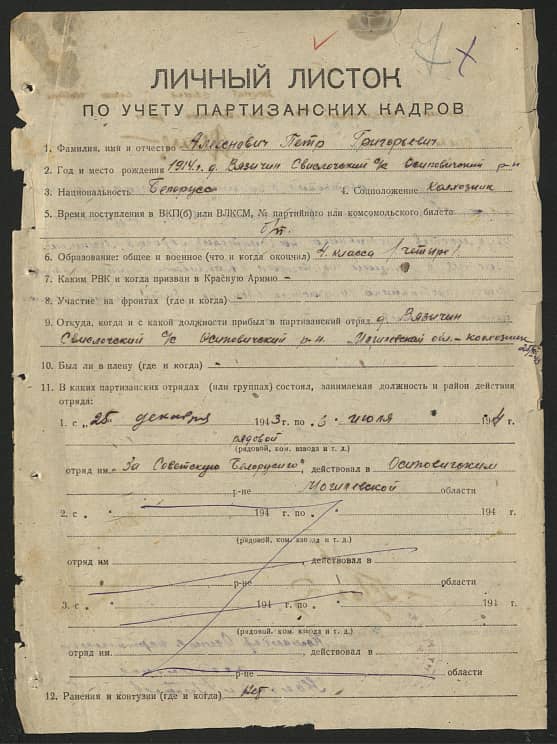 ЛИЧНЫЙ ЛИСТОК
ПО УЧЕТУ ПАРТИЗАНСКИХ КАДРОВ
1. Фамилия, имя и отчество Петр Григорьевич
2. Год и место рождения 1914 г. д. Вязичин Свислочский с/с Осиповичский р-н
3. Национальность Белорус 4. Соцположение Колхозник
5. Время поступления в ВКП(б) или ВЛКСМ, № партийного или комсомольского билета
б/п
6. Образование: общее и военное (что и когда окончил) 4 класса (четыре)
7. Каким РВК и когда призван в Красную Армию –
8. Участие на фронтах (где и когда)
9. Откуда, когда и с какой должности прибыл в партизанский отряд д. Вязичин
Свислочский с/с Осиповичский р-н. Могилевской обл. – колхозник
10. Был ли в плену (где и когда) –
11. В каких партизанских отрядах (или группах) состоял, занимаемая должность и район действия
отряда:
1. с „25" декабря 1943 г. по „3" июля 1944 г.
рядовой
(рядовой, ком. взвода и т. д.)
отряд им. "За Советскую Белоруссию", действовал в Осиповичском
р-не Могилевской области
2. с „ " 194 г. по „ " 194 г.
(рядовой, ком. взвода и т. д.)
отряд им , действовал в
р-не области
3. с „ " 194 г. по „ " 194 г.
(рядовой, ком. взвода и т. д.)
отряд им. , действовал в
р-не области
12. Ранения и контузии (где и когда) нет